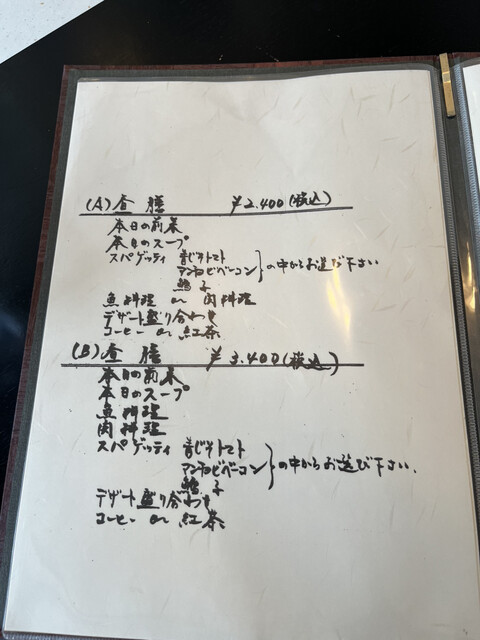 (A) 昼 膳 ¥2.400 (税込)
本日の前菜
本日のスープ
スパゲッティ 青じそトマト
アンチョビベーコン
鱈子
の中からお選び下さい
魚料理 or 肉料理
デザート盛り合わせ
コーヒー or 紅茶
(B) 昼 膳 ¥3.400 (税込)
本日の前菜
本日のスープ
魚料理
肉料理
スパゲッティ 青じそトマト
アンチョビベーコン
鱈子
の中からお選び下さい.
デザート盛り合わせ
コーヒー or 紅茶